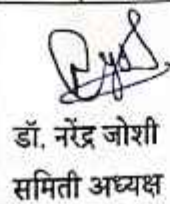 डॉ. नरेंद्र जोशी
समिती अध्यक्ष